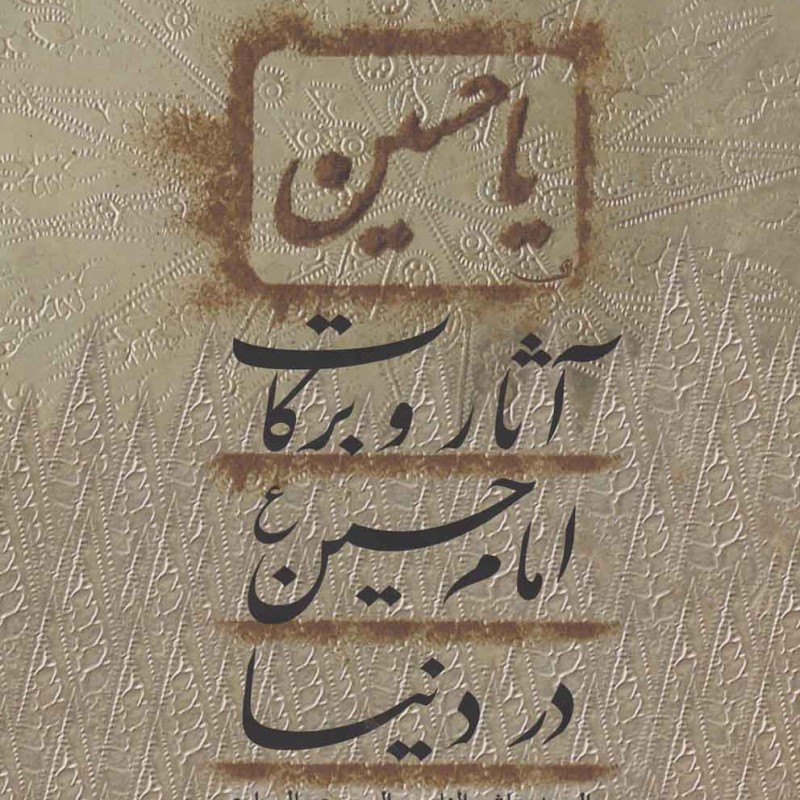 یا حسین
آثار و برکات
امام حسین ع
در دنیا